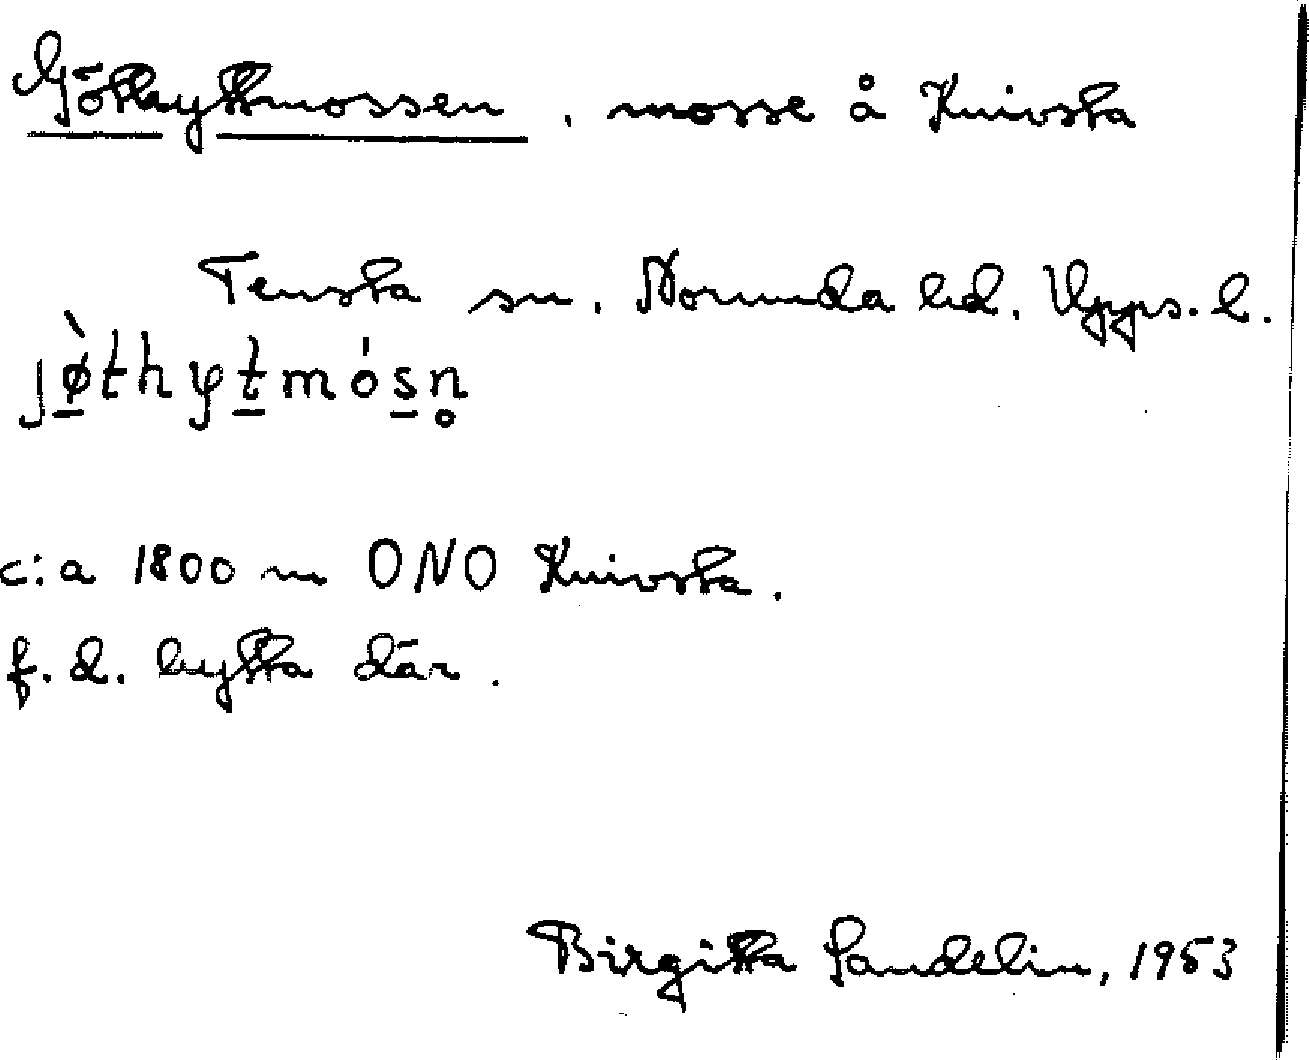 Göthyttmossen, mosse å Knivsta
Tensta sn. Norunda hd. Upps. l.
jø̠̀thyt̠mós̠n̥
c:a 1800 m ONO Knivsta.
f.d. hytta där.
Birgitta Sandelin, 1953